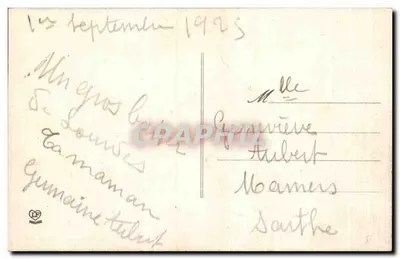 1er Septembre 1925
Un gros baiser
de Lourdes
Ta maman
Germaine Aubert
Mlle
Geneviève
Aubert
Mamers
Sarthe